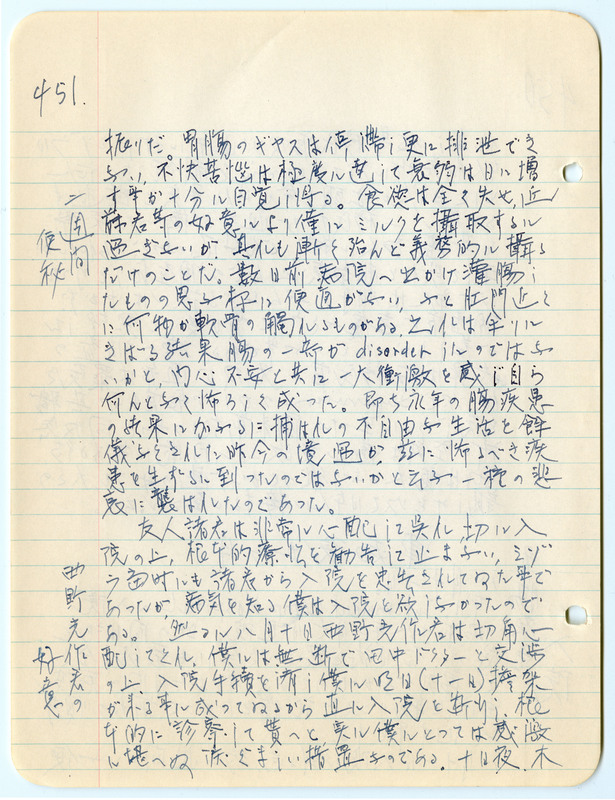 451.
振りだ。胃腸のギャスは停滞し更に排泄でき
ない、不快苦悩は極度に達して衰弱は日に増
す事が十分に自覚し得る。食慾は全く失せ、近
二週間
便秘
諸君等の好意により僅にミルクを攝取するに
過ぎないが、其れも漸く殆んど義務的に攝る
だけのことだ。数日前病院へ出かけ灌腸し
たものの思ふ様に便通がない、ふと肛門近く
に何物か軟骨の觸れるものがある。之れは余りに
きばる結果腸の一部が disorder したのではな
いかと、内心不安と共に一大衝激を感じ自ら
何んとなく怖ろしく成った。即ち永年の腸疾患
の結果にかかるに捕はれの不自由な生活を餘
儀なくされた昨今の境遇が、茲に怖るべき疾
患を生ずるに到ったのではないかと云ふ一種の悲
哀に襲はれたのであった。
友人諸君は非常に心配して呉れ、切に入
院の上、根本的療法を勧告して止まない、ミゾ
ラ当時にも諸君から入院を忠告されてゐた事で
あったが、病気を知る僕は入院を欲しなかったので
ある。然るに八月十日西野光作君は切角心
西野光作君の
好意
配してくれ、僕には無断で田中ドクターと交渉
の上、入院手續を済し僕に明日(十一日)擔架
が来る事に成ってゐるから直に入院と断り、根
本的に診察して貰へと実に僕にとっては感激
に堪へぬ涙ぐましい措置なのである。十日夜、木